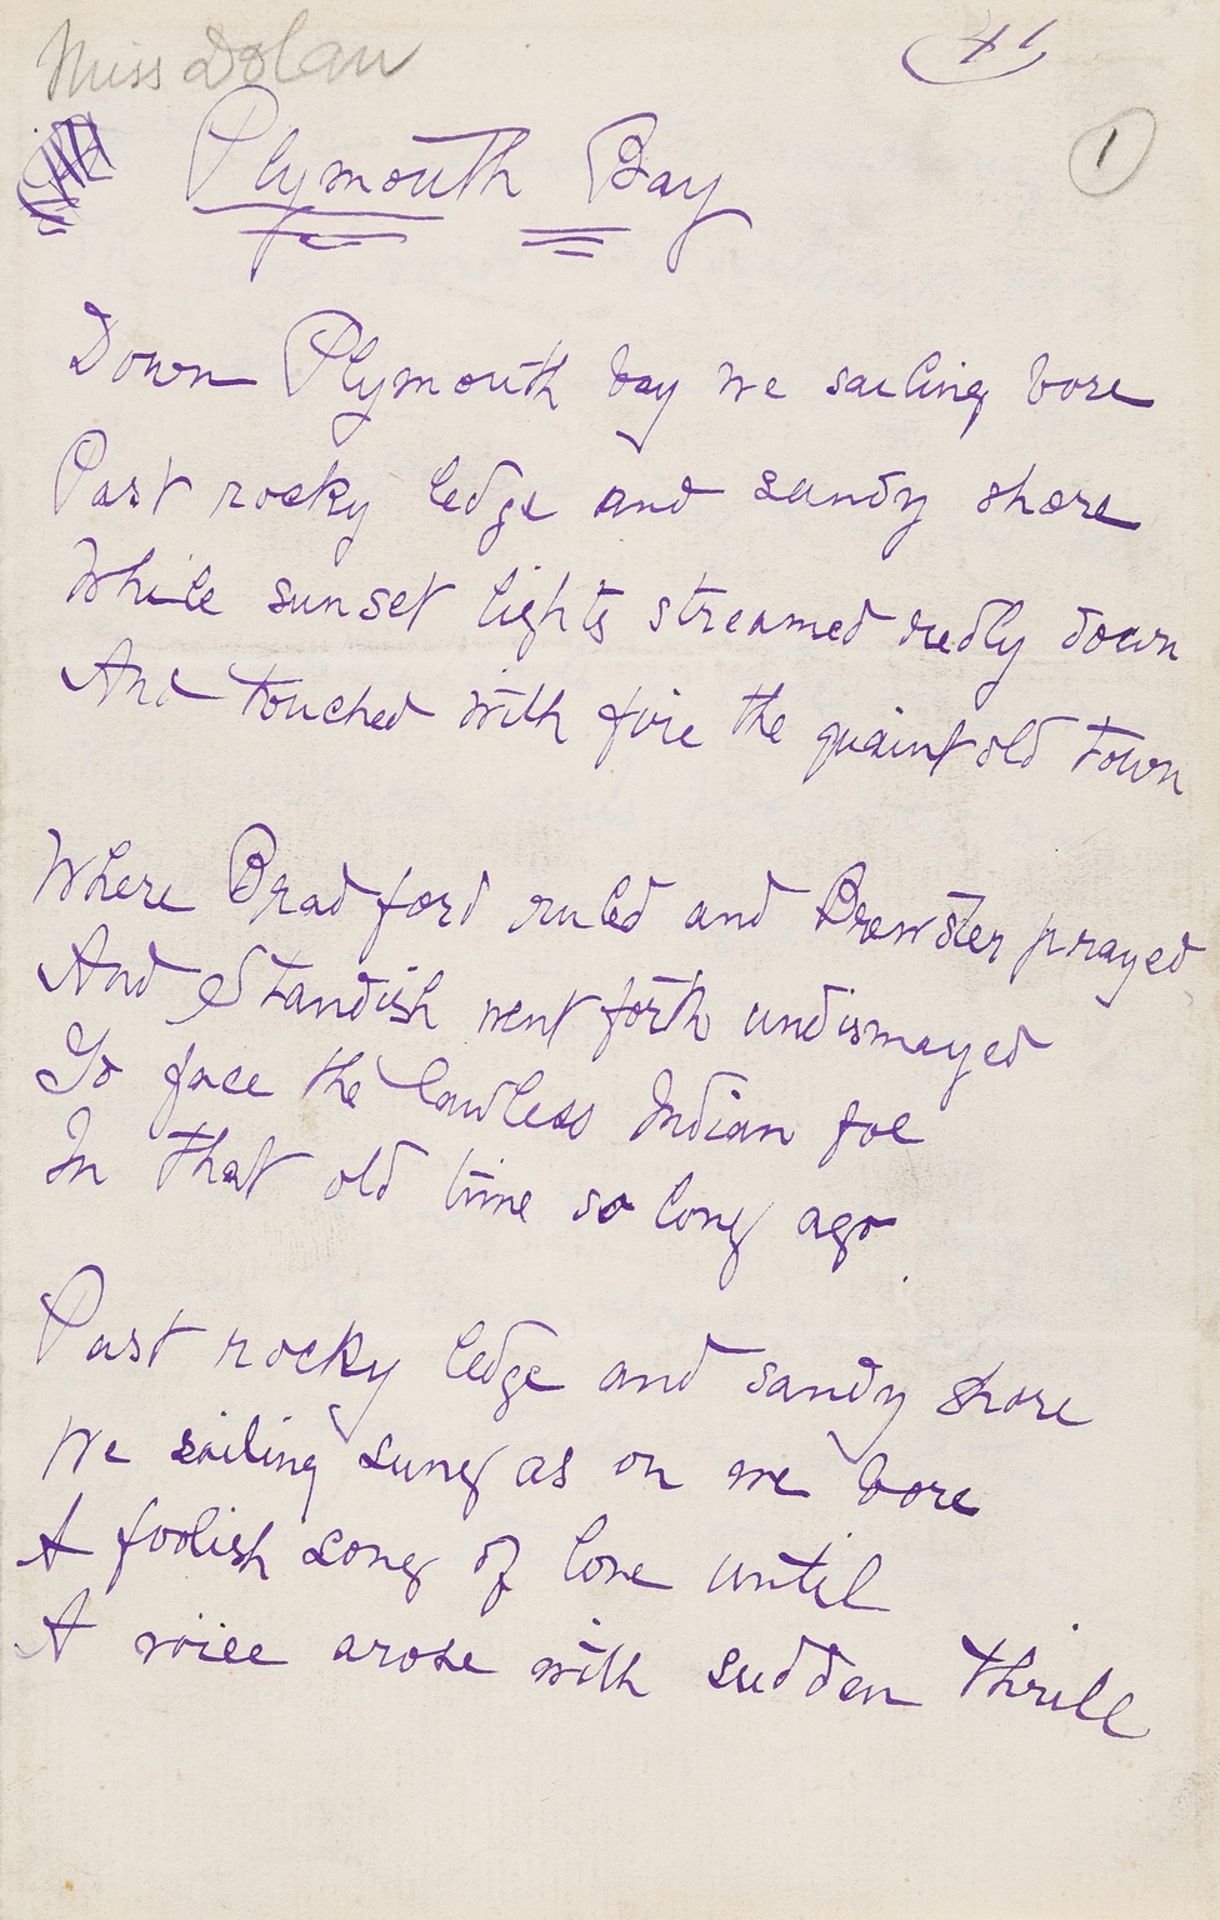 Miss Dolan
41
1
Plymouth Bay
Down Plymouth bay we sailing bore
Past rocky ledge and sandy shore
While sunset lights streamed redly down
And touched with fire the quaint old town
Where Bradford ruled and Brewster prayed
And Standish went forth undismayed
To face the lawless Indian foe
In that old time so long ago.
Past rocky ledge and sandy shore
We sailing sung as on we bore
A foolish song of love until
A voice arose with sudden thrill